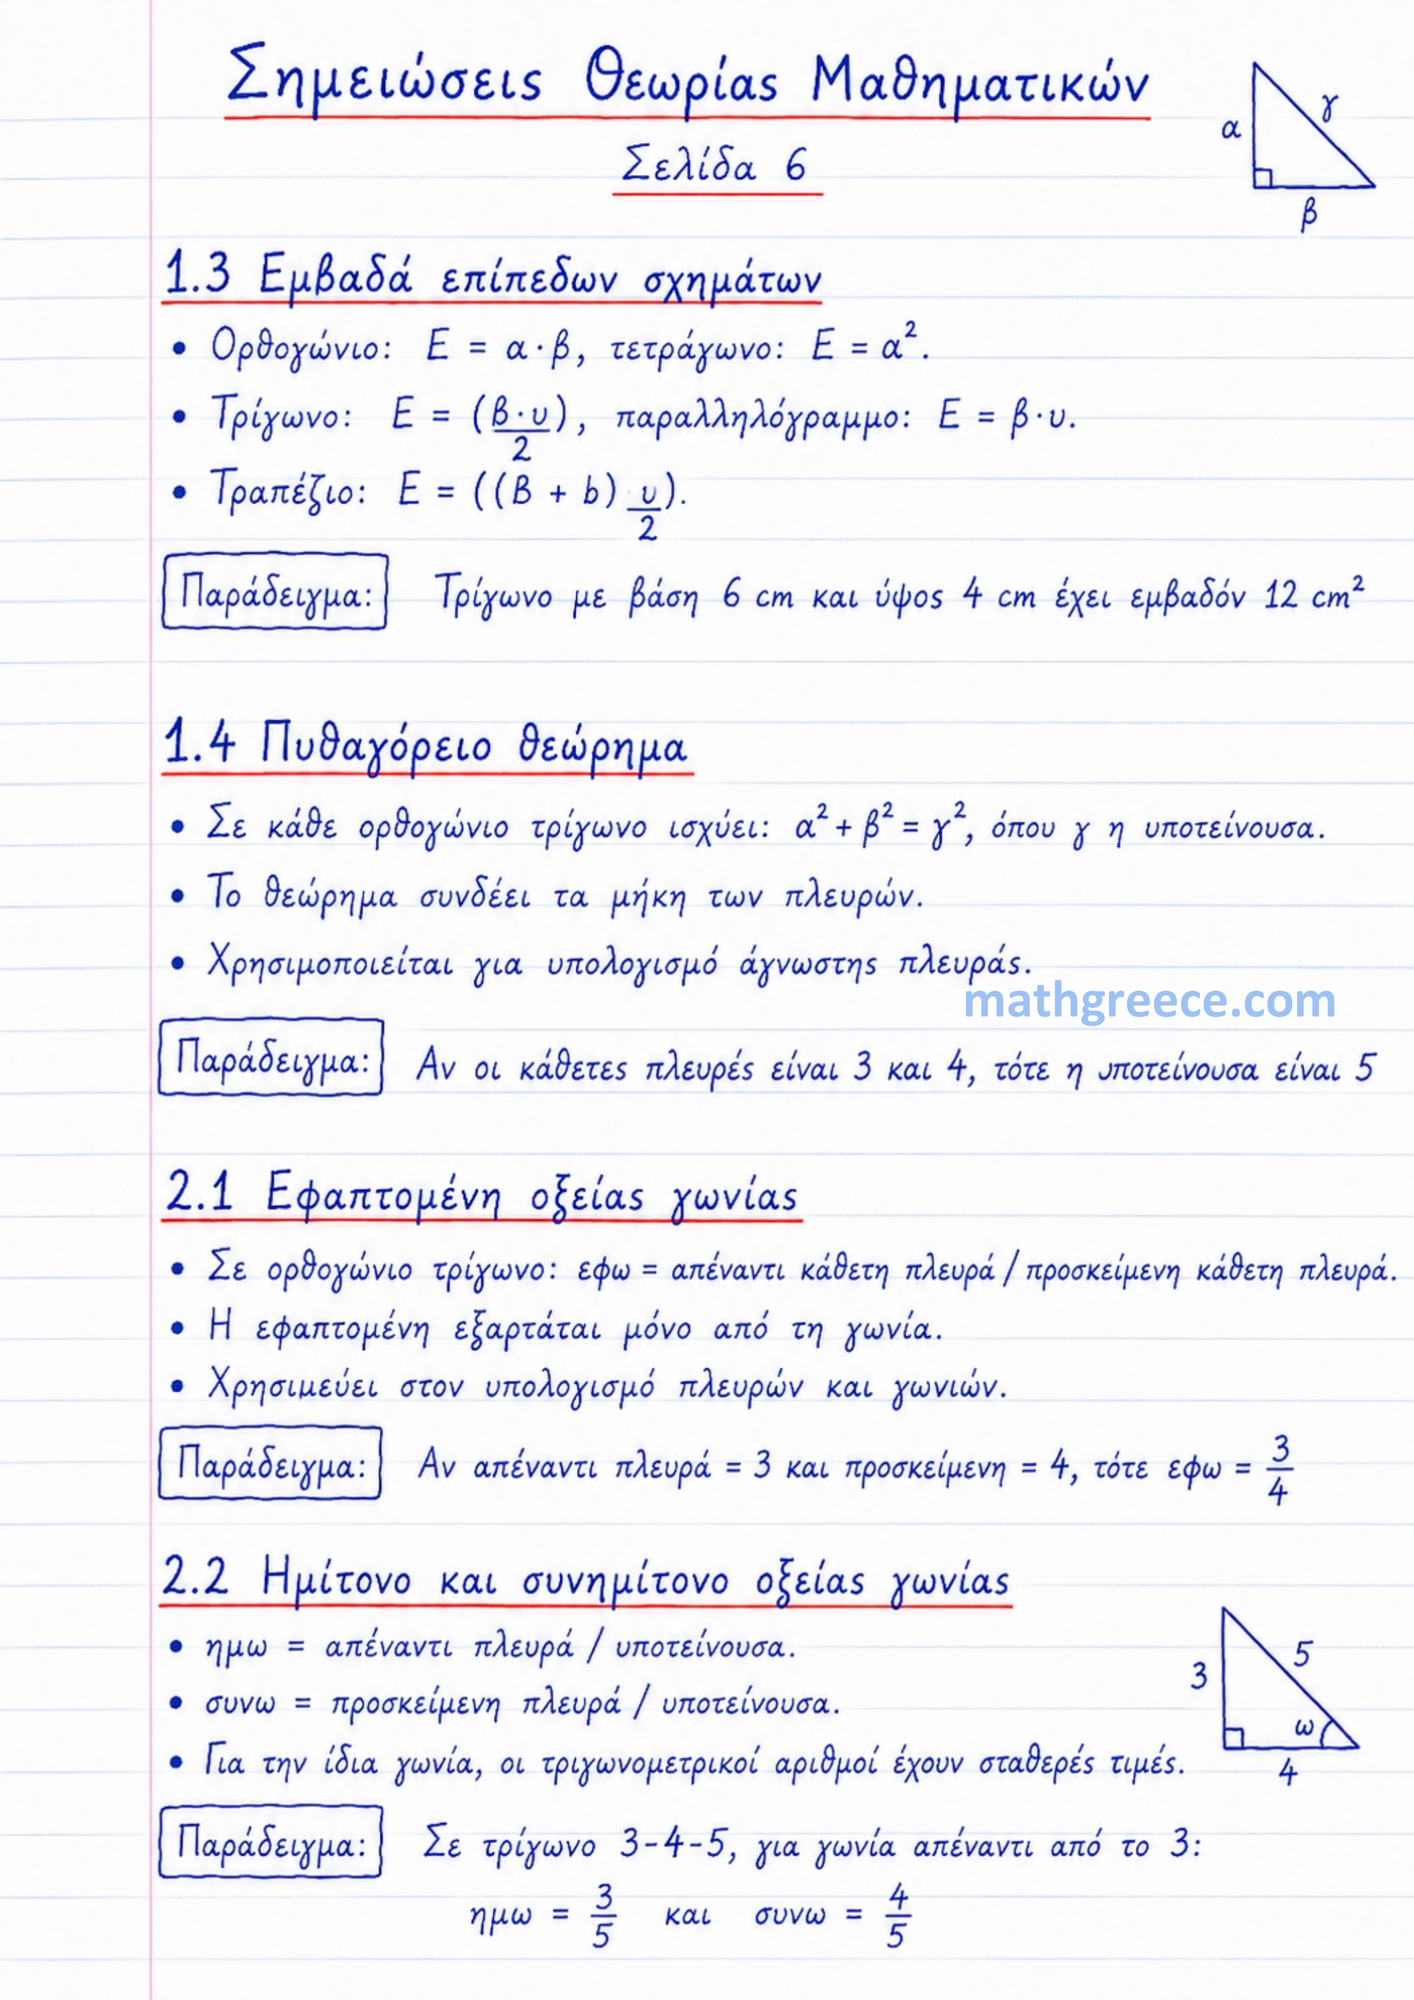 Σημειώσεις Θεωρίας Μαθηματικών
Σελίδα 6
α
γ
β
1.3 Εμβαδά επίπεδων σχημάτων
• Ορθογώνιο: Ε = α·β, τετράγωνο: Ε = α².
• Τρίγωνο: Ε = (β·υ/2), παραλληλόγραμμο: Ε = β·υ.
• Τραπέζιο: Ε = ((Β + b) υ/2).
Παράδειγμα: Τρίγωνο με βάση 6 cm και ύψος 4 cm έχει εμβαδόν 12 cm²
1.4 Πυθαγόρειο θεώρημα
• Σε κάθε ορθογώνιο τρίγωνο ισχύει: α² + β² = γ², όπου γ η υποτείνουσα.
• Το θεώρημα συνδέει τα μήκη των πλευρών.
• Χρησιμοποιείται για υπολογισμό άγνωστης πλευράς.
mathgreece.com
Παράδειγμα: Αν οι κάθετες πλευρές είναι 3 και 4, τότε η υποτείνουσα είναι 5
2.1 Εφαπτομένη οξείας γωνίας
• Σε ορθογώνιο τρίγωνο: εφω = απέναντι κάθετη πλευρά / προσκείμενη κάθετη πλευρά.
• Η εφαπτομένη εξαρτάται μόνο από τη γωνία.
• Χρησιμεύει στον υπολογισμό πλευρών και γωνιών.
Παράδειγμα: Αν απέναντι πλευρά = 3 και προσκείμενη = 4, τότε εφω = 3/4
2.2 Ημίτονο και συνημίτονο οξείας γωνίας
• ημω = απέναντι πλευρά / υποτείνουσα.
• συνω = προσκείμενη πλευρά / υποτείνουσα.
• Για την ίδια γωνία, οι τριγωνομετρικοί αριθμοί έχουν σταθερές τιμές.
3
5
ω
4
Παράδειγμα: Σε τρίγωνο 3-4-5, για γωνία απέναντι από το 3:
ημω = 3/5 και συνω = 4/5